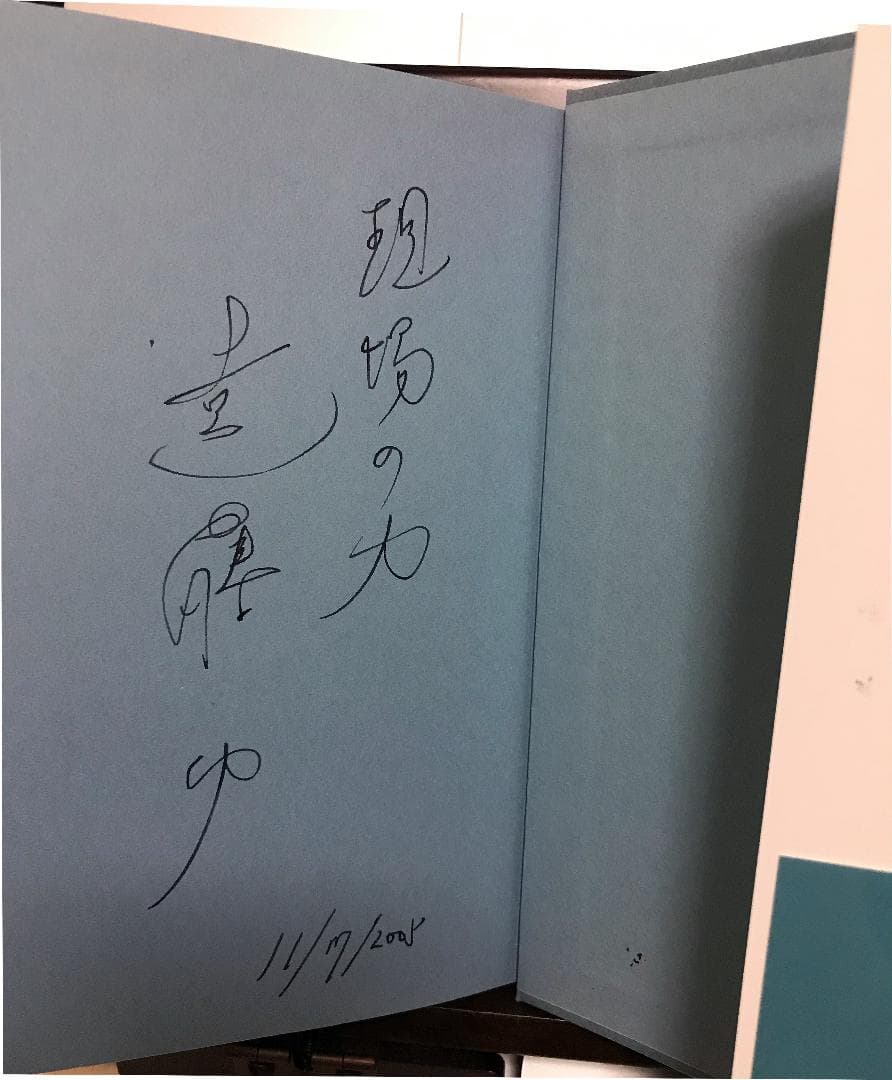 現場の力
遠藤功
11/17/2005